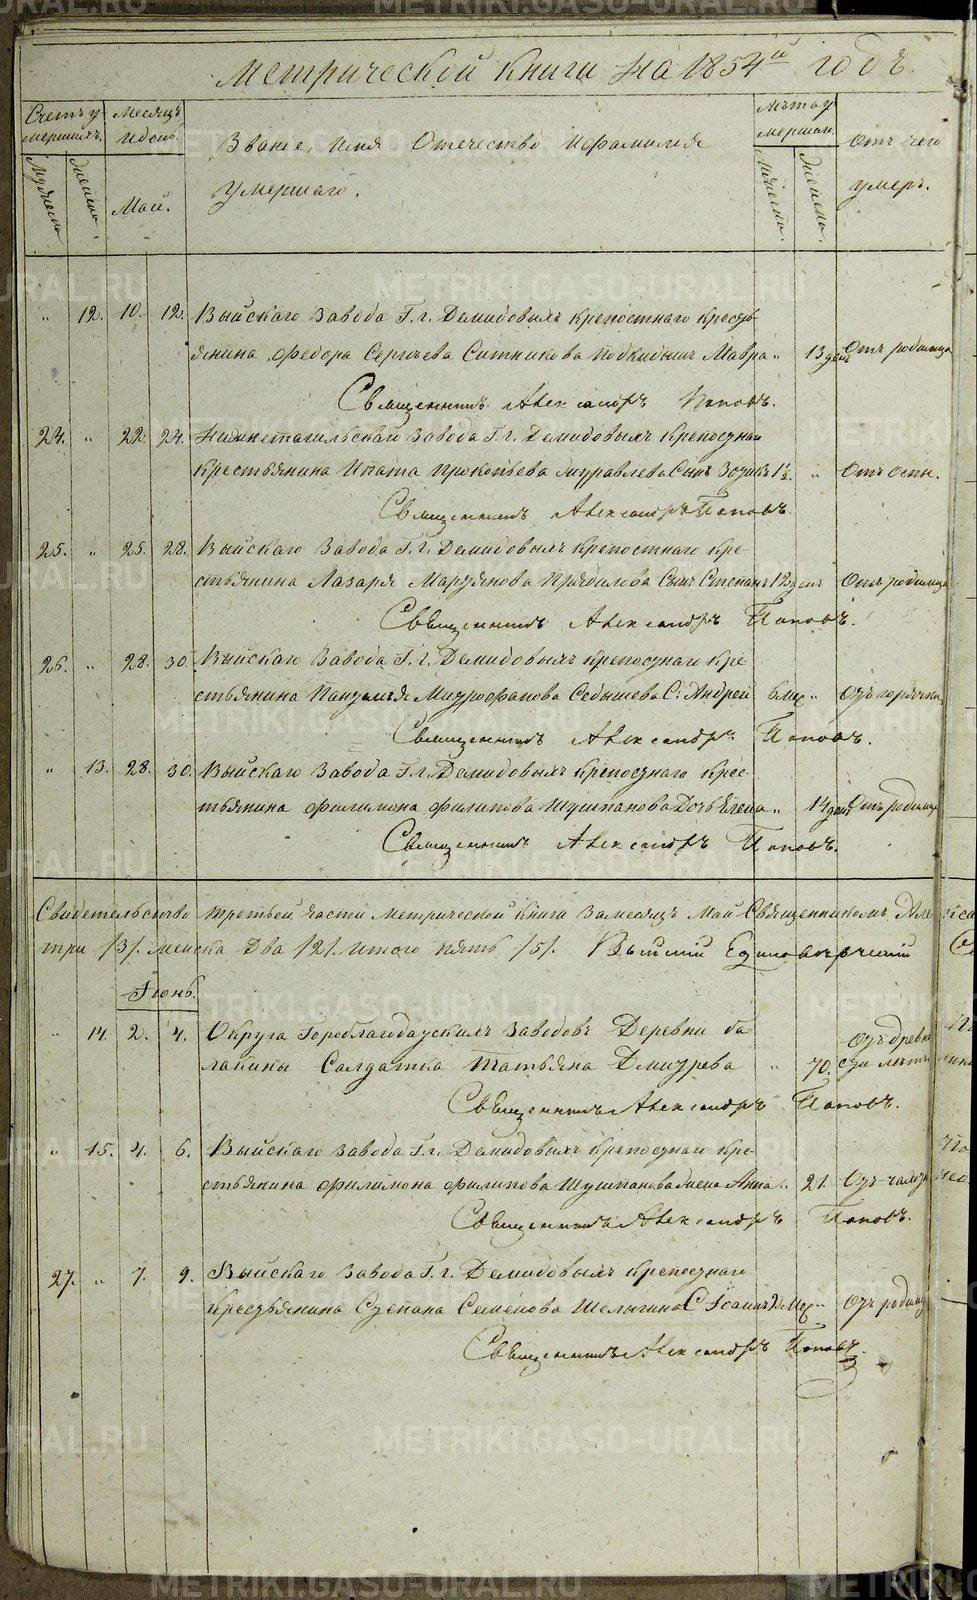 Метрической Книги на 1854й годъ.
Счетъ у Месяцъ Лѣта у
мершихъ. и день. Званіе, Имя Отечество и Фамилія мершаго. Отъ чего
умершаго. умеръ.
Мужеска Женска. Май. Мужеска. Женска.
" 12. 10. 12. Выйскаго Завода Г. г. Демидовыхъ крепостнаго кресть-
янина Федора Сергѣева Ситникова подкидышъ Мавра " 13 дней Отъ родимца
Священникъ Александръ Поповъ.
24. " 22. 24. Нижнетагильскаго Завода Г. г. Демидовыхъ крепостнаго
крестьянина Ипата Прокопьева Муравлева Сынъ 1½. " Отъ оспы.
Священникъ Александръ Поповъ.
25. " 25. 28. Выйскаго Завода Г. г. Демидовыхъ крепостнаго кре-
стьянина Лазаря Сынъ Степанъ 12 дней Отъ родимца
Священникъ Александръ Поповъ.
26. " 28. 30. Выйскаго Завода Г. г. Демидовыхъ крепостнаго кре-
стьянина Митрофанова С: Андрей 6 мес. " Отъ горячки
Священникъ Александръ Поповъ.
" 13. 28. 30. Выйскаго Завода Г. г. Демидовыхъ крепостнаго крес-
тьянина Филимона Филипова Шушпанова Дочь Елена " 14 дней Отъ родимца
Священникъ Александръ Поповъ.
Свидетельство третьей части Метрической Книги за месяцъ Май Священникомъ Але
три /3/. женска два /2/. итого пять /5/. Выйскій Единоверческій
Іюнь.
" 14. 2. 4. Округа Гороблагодатскихъ Заводовъ Деревни ба
лакины Салдатка Татьяна Дмитрева " 70. Отъ древно
сти летъ
Священникъ Александръ Поповъ.
" 15. 4. 6. Выйскаго Завода Г. г. Демидовыхъ крепостнаго кре-
стьянина Филимона Филипова Шушпанова жена Анна " 21. Отъ чахот
Священникъ Александръ Поповъ.
27. " 7. 9. Выйскаго Завода Г. г. Демидовыхъ крепостнаго
крестьянина Степана Семенова Шелыгина С: Іоаннъ 2 мес. " Отъ родимц
Священникъ Александръ Поповъ.
METRIKI.GASO-URAL.RU